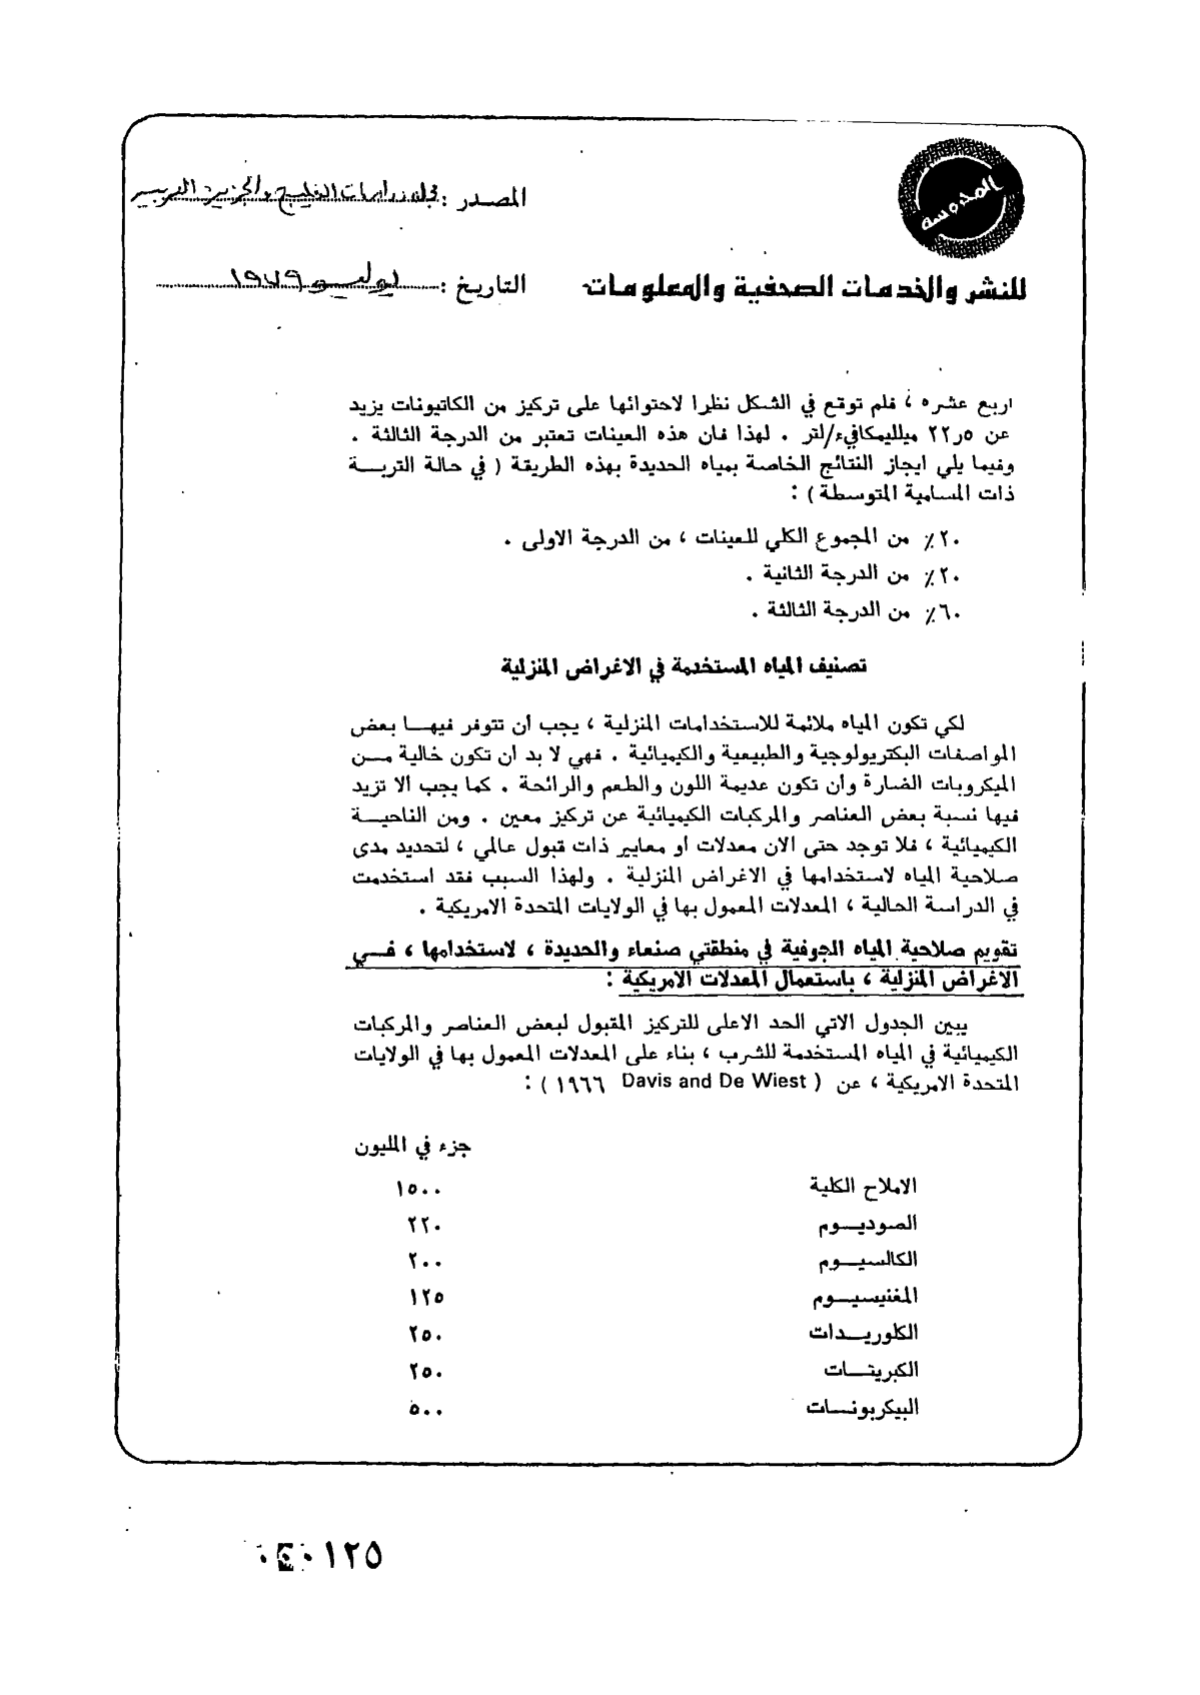 المحروسة
المصدر : مجلة دراسات الخليج والجزيرة العربية
للنشر والخدمات الصحفية والمعلومات
التاريخ : يوليو ١٩٧٩
اربع عشره ، فلم توقع في الشكل نظرا لاحتوائها على تركيز من الكاتيونات يزيد
عن ٢٢٫٥ ميلليمكافيء/لتر . لهذا فان هذه العينات تعتبر من الدرجة الثالثة .
وفيما يلي ايجاز النتائج الخاصة بمياه الحديدة بهذه الطريقة ( في حالة التربـــة
ذات المسامية المتوسطة ) :
٢٠٪ من المجموع الكلي للعينات ، من الدرجة الاولى .
٢٠٪ من الدرجة الثانية .
٦٠٪ من الدرجة الثالثة .
تصنيف المياه المستخدمة في الاغراض المنزلية
لكي تكون المياه ملائمة للاستخدامات المنزلية ، يجب أن تتوفر فيهـــا بعض
المواصفات البكتريولوجية والطبيعية والكيميائية . فهي لا بد أن تكون خالية مـــن
الميكروبات الضارة وأن تكون عديمة اللون والطعم والرائحة . كما يجب الا تزيد
فيها نسبة بعض العناصر والمركبات الكيميائية عن تركيز معين . ومن الناحيـــة
الكيميائية ، فلا توجد حتى الان معدلات أو معايير ذات قبول عالمي ، لتحديد مدى
صلاحية المياه لاستخدامها في الاغراض المنزلية . ولهذا السبب فقد استخدمت
في الدراسة الحالية ، المعدلات المعمول بها في الولايات المتحدة الامريكية .
تقويم صلاحية المياه الجوفية في منطقتي صنعاء والحديدة ، لاستخدامها ، فـــي
الاغراض المنزلية ، باستعمال المعدلات الامريكية :
يبين الجدول الاتي الحد الاعلى للتركيز المقبول لبعض العناصر والمركبات
الكيميائية في المياه المستخدمة للشرب ، بناء على المعدلات المعمول بها في الولايات
المتحدة الامريكية ، عن ( Davis and De Wiest ١٩٦٦ ) :
جزء في المليون
الاملاح الكلية ١٥٠٠
الصوديـــوم ٢٢٠
الكالسيـــوم ٢٠٠
المغنيسيـــوم ١٢٥
الكلوريـــدات ٢٥٠
الكبريتـــات ٢٥٠
البيكربونـــات ٥٠٠